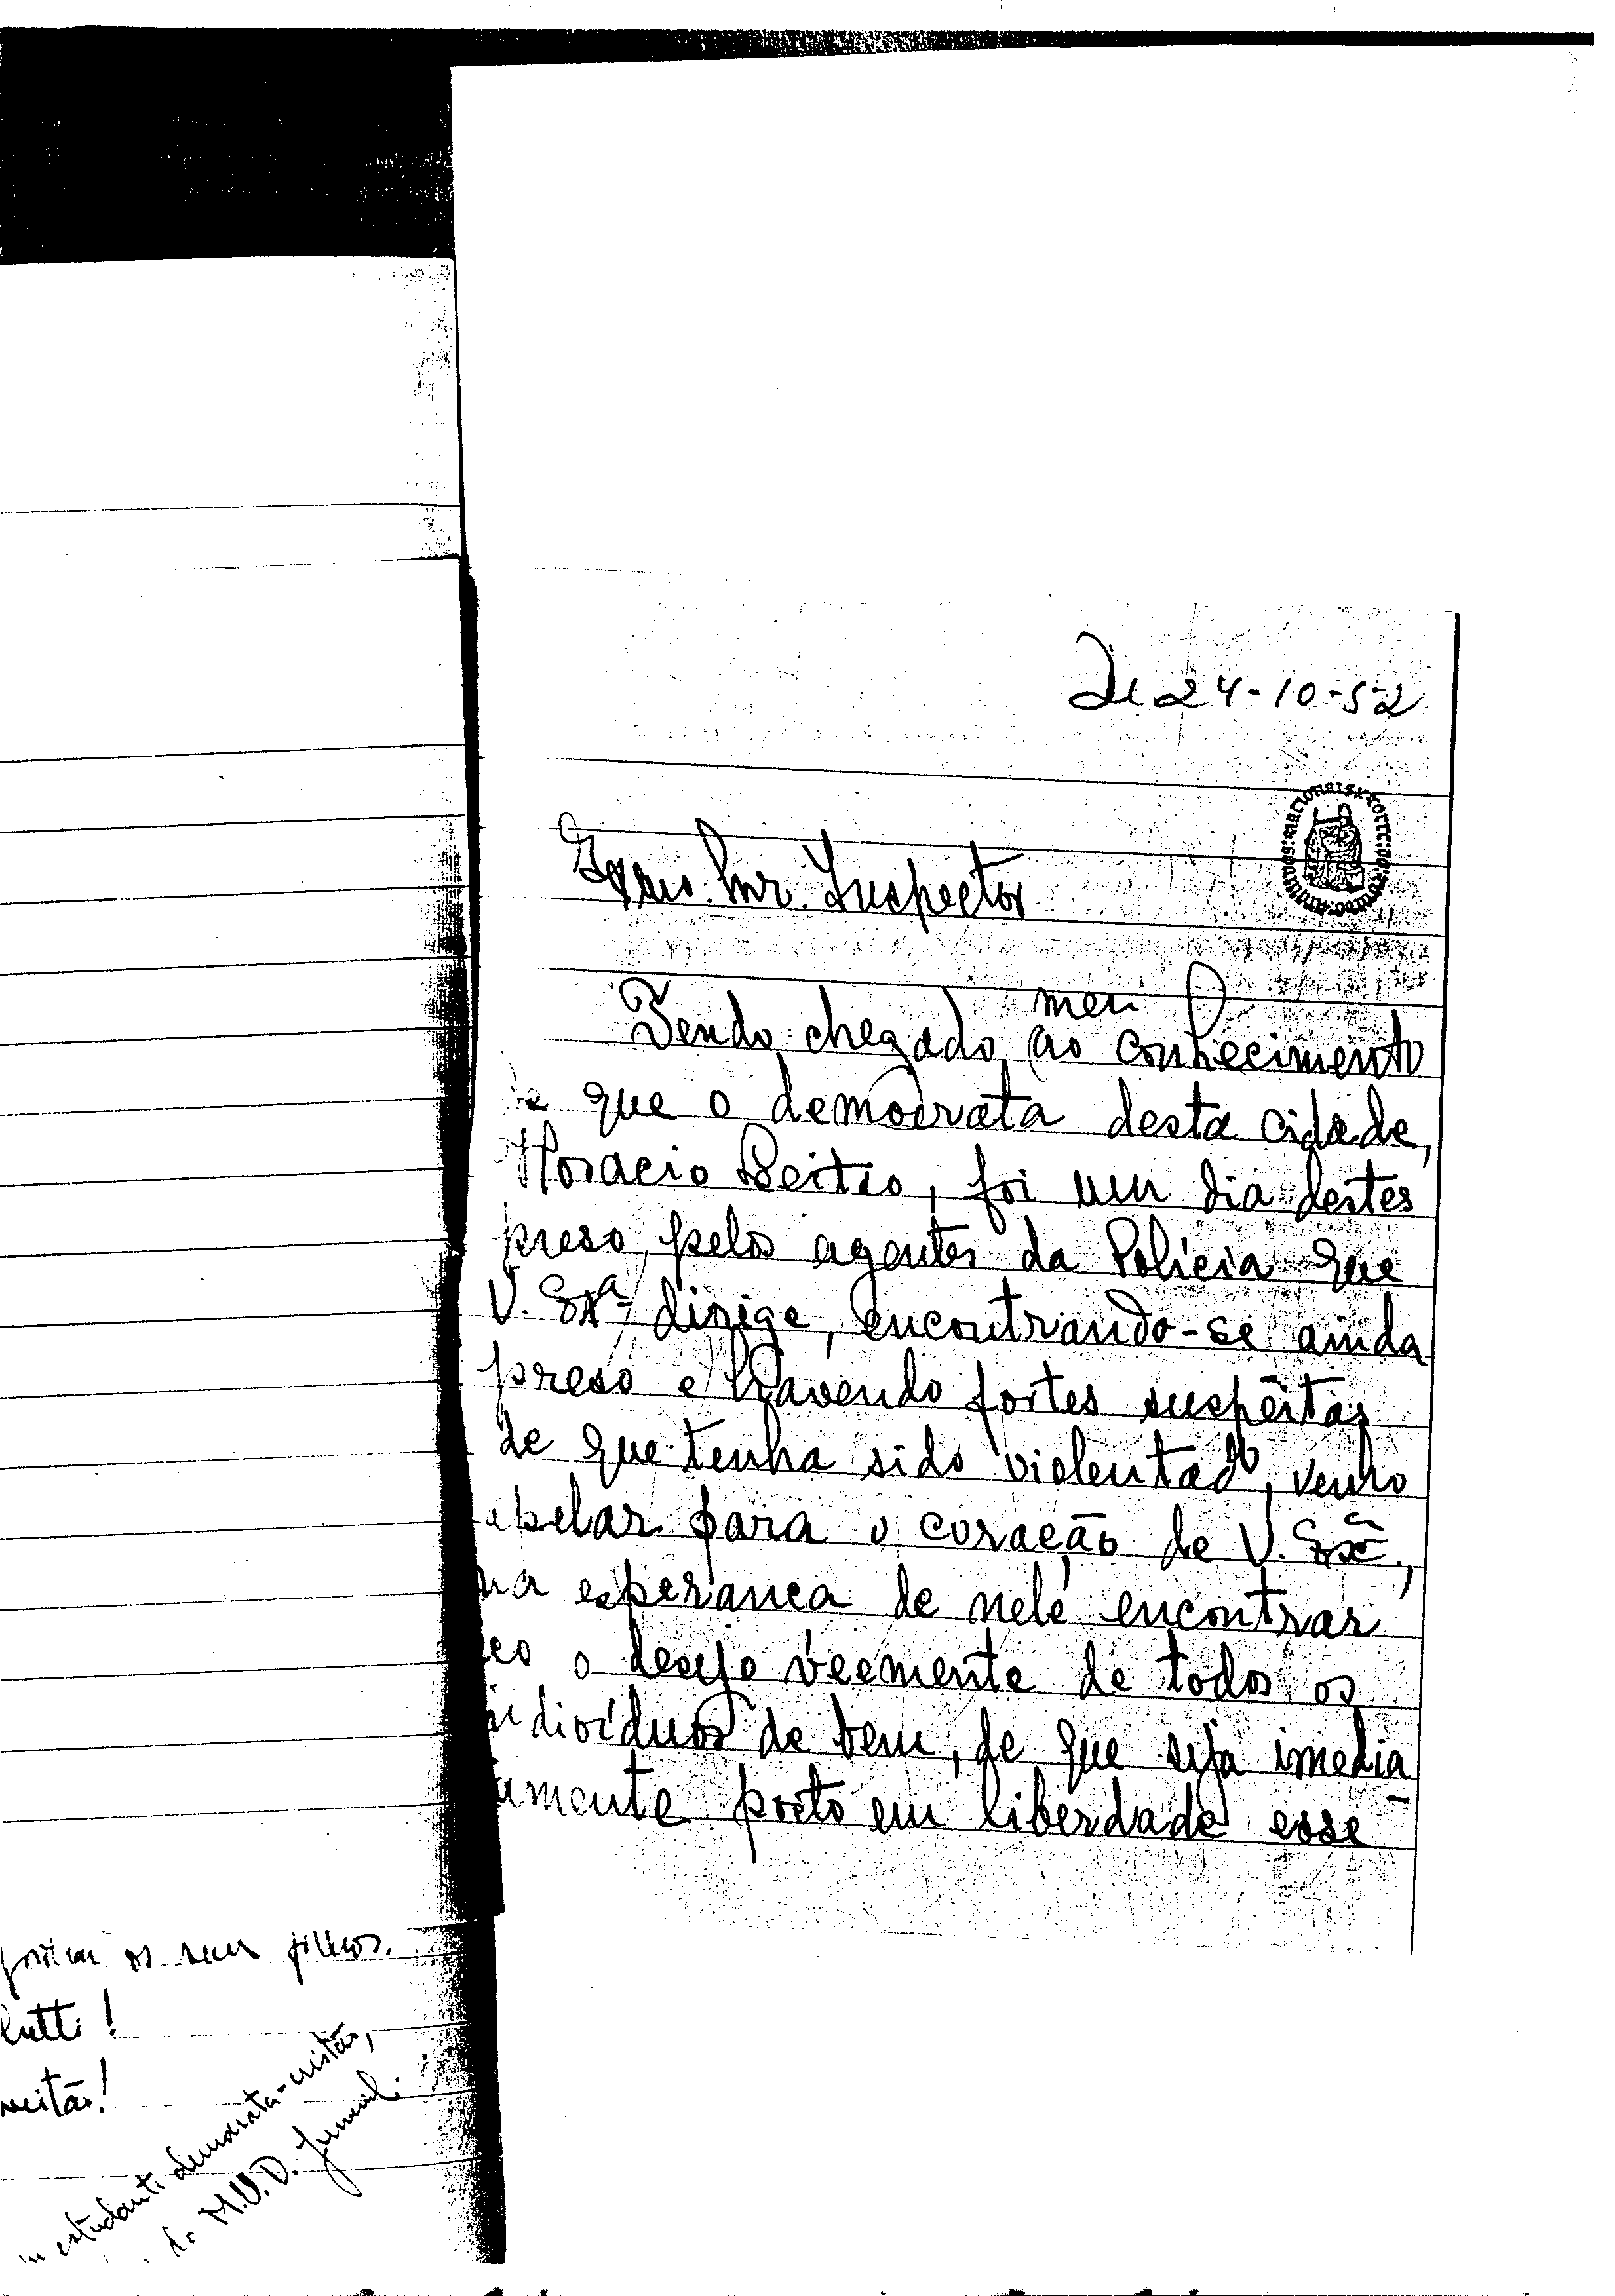 De 24-10-52
Exmo. Snr. Inspector
meu
Tendo chegado ao conhecimento
de que o democrata desta cidade,
Horacio Beitão, foi um dia destes
preso, pelos agentes da Polícia que
V. Exª dirige, encontrando-se ainda
preso e havendo fortes suspeitas
de que tenha sido violentado, venho
apelar para o coração de V. Exª.,
na esperança de nele encontrar
eco o desejo veemente de todos os
indivíduos de bem, de que seja imedia
tamente posto em liberdade esse
os seus filhos.
lutti!
eitão!
estudante democrata-cristão,
do M.U.D. Juvenil